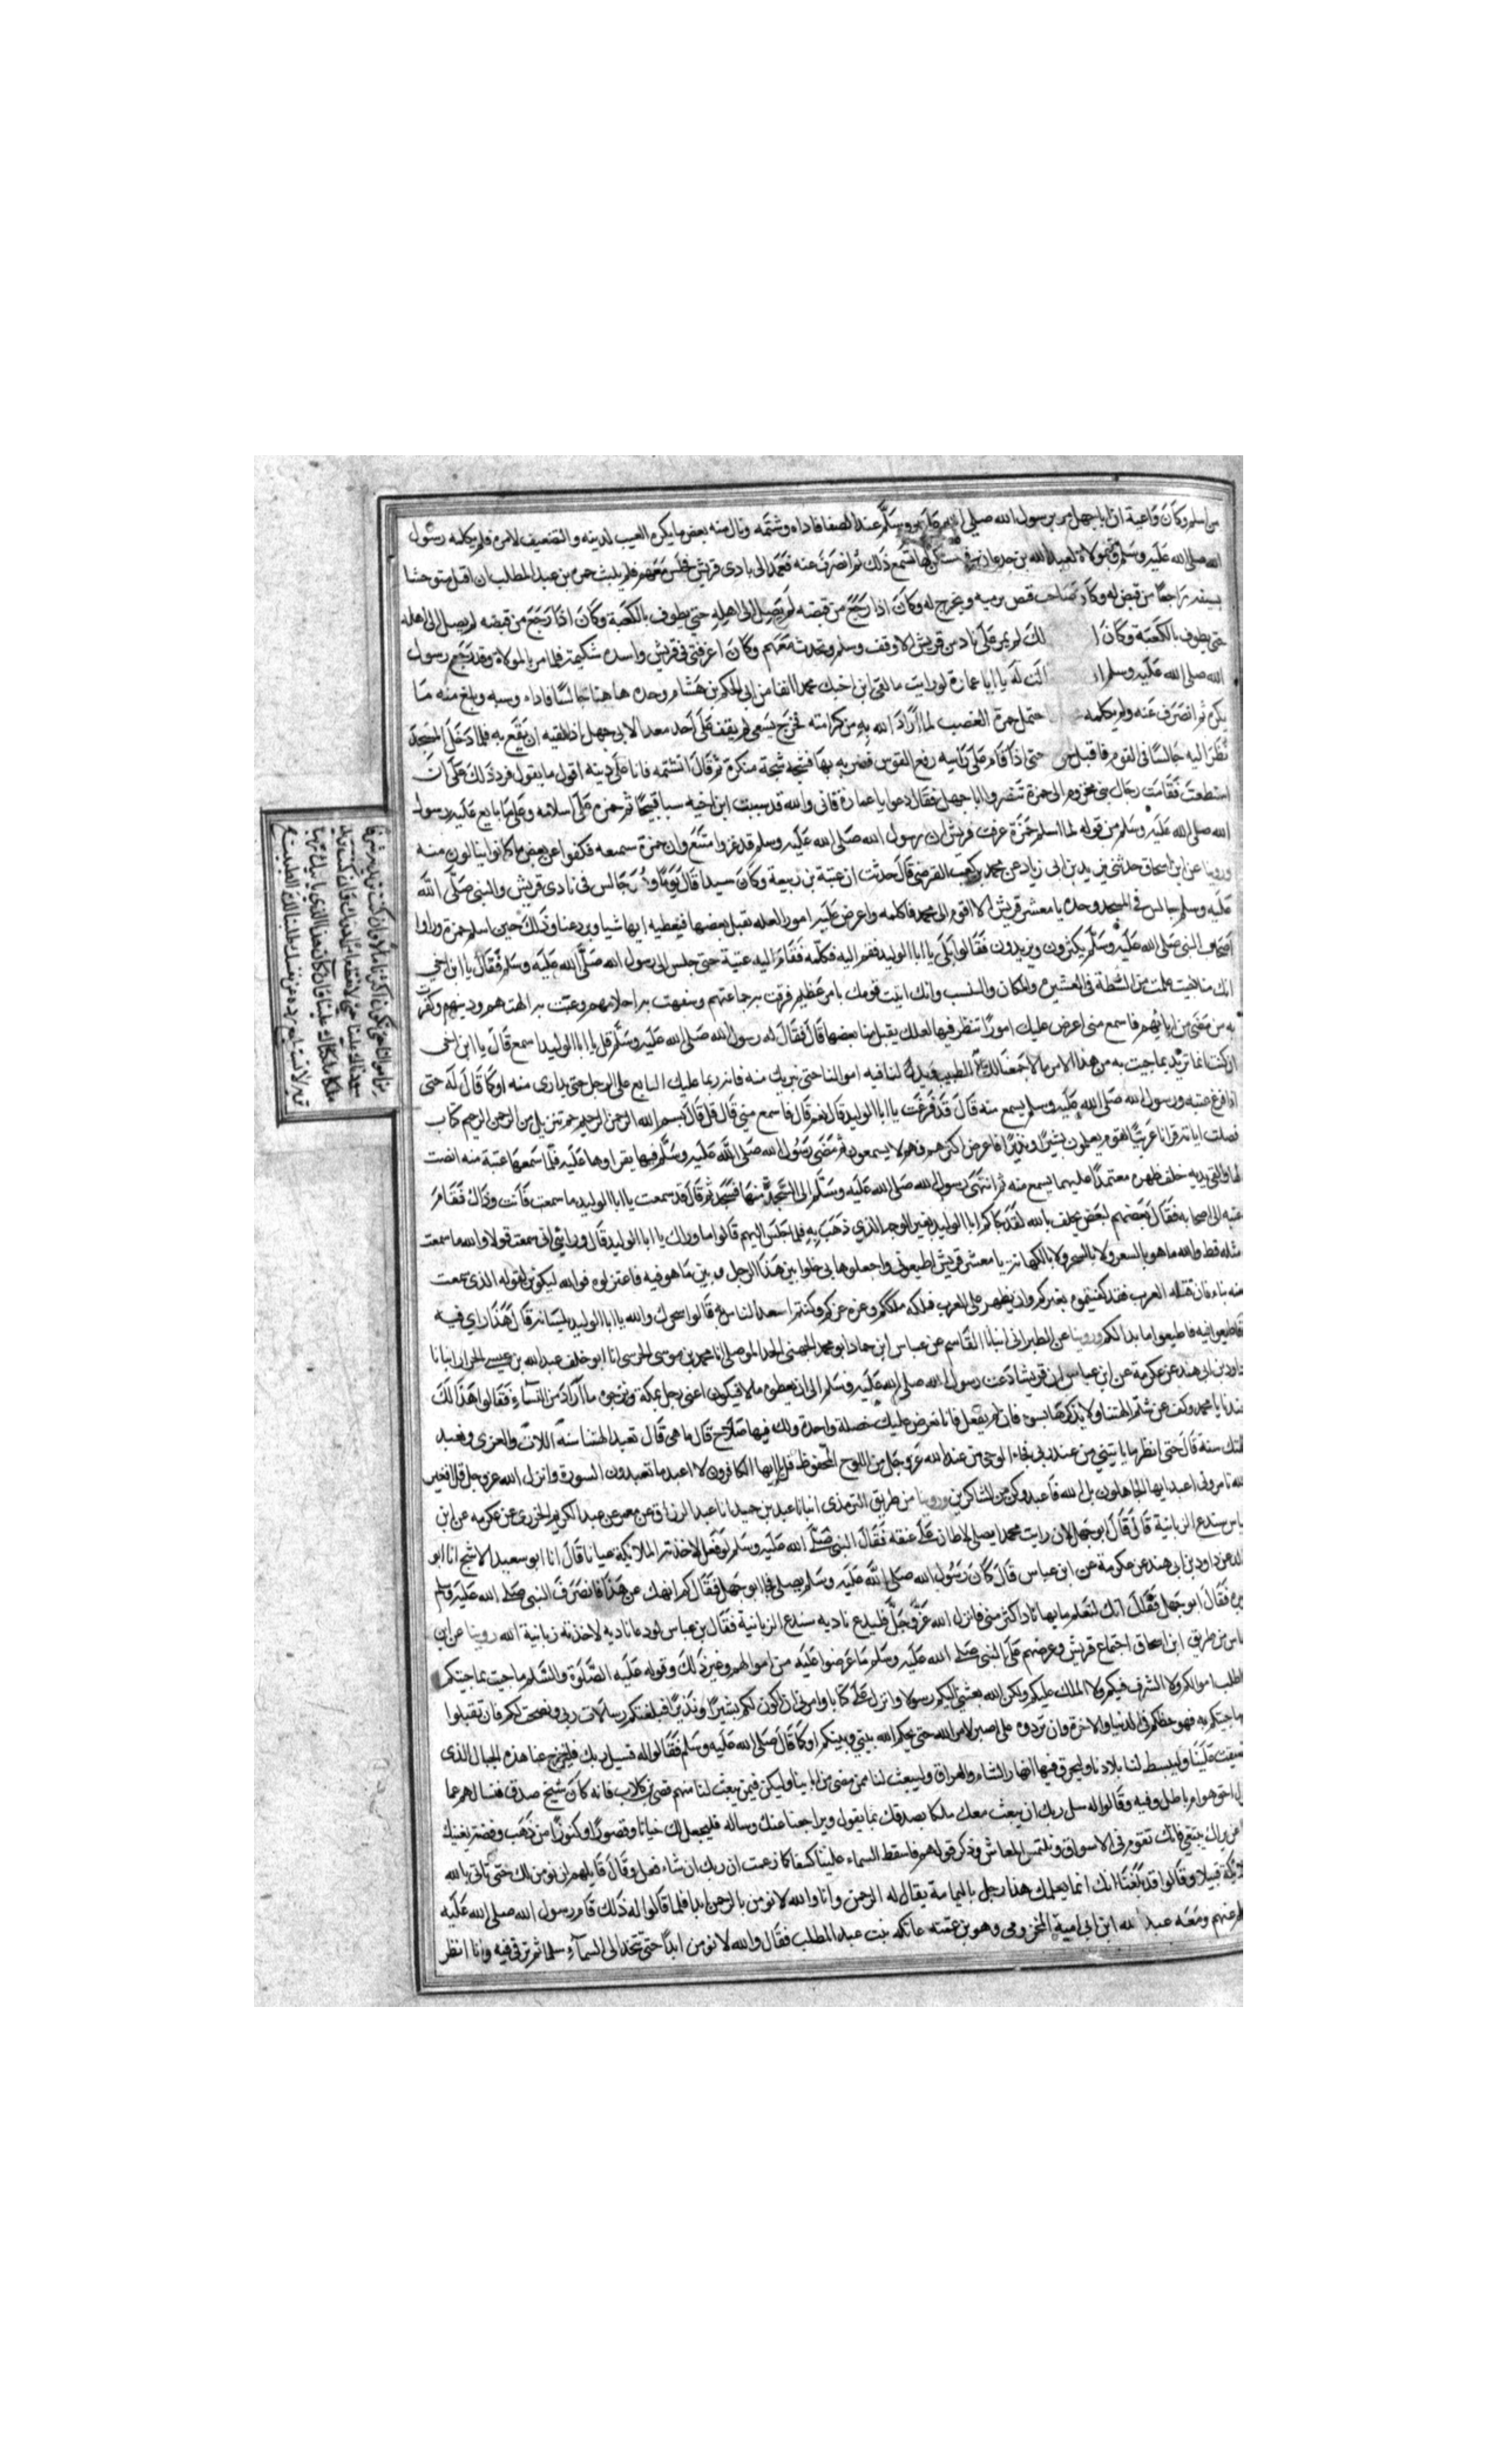 من اسلم وكان واعية ان ابا جهل مر برسول الله صلى الله عليه وسلم عند الصفا فاذاه وشتمه ونال منه بعض ما يكره من العيب لدينه والتضعيف لامره فلم يكلمه رسول
الله صلى الله عليه وسلم ومولاة لعبد الله بن جدعان في مسكن لها تسمع ذلك ثم انصرف عنه فعمد الى نادى قريش فجلس معهم فلم يلبث حمزة بن عبد المطلب ان اقبل متوشحا
بسيفه راجعا من قنص له وكان صاحب قنص يرميه ويخرج له وكان اذا رجع من قنصه لم يصل الى اهله حتى يطوف بالكعبة وكان اذا رجع من قنصه لم يصل الى اهله
حتى يطوف بالكعبة وكان ا لك لم يمر على ناد من قريش الا وقف وسلم وتحدث معهم وكان اعز فتى في قريش واسده شكيمة فلما مر بالمولاة وقد رجع رسول
الله صلى الله عليه وسلم الت له يا ابا عمارة لو رايت ما لقى ابن اخيك محمد انفا من ابى الحكم بن هشام وحده ها هنا جالسا فاذاه وسبه وبلغ منه ما
يكره ثم انصرف عنه ولم يكلمه حتمل حمزة الغضب لما اراد الله به من كرامته فخرج يسعى لم يقف على احد معدا لابى جهل اذا لقيه ان يقع به فلما دخل المسجد
نظر اليه جالسا في القوم فاقبل حتى اذا قام على راسه رفع القوس فضربه بها فشجه شجة منكرة ثم قال اتشتمه فانا على دينه اقول ما يقول فرد ذلك على ان
استطعت فقامت رجال بنى مخزوم الى حمزة لينصروا ابا جهل فقال دعوا ابا عمارة فانى والله قد سببت ابن اخيه سبا قبيحا ثم حمزة على اسلامه وعلى ما بايع عليه رسول
الله صلى الله عليه وسلم من قوله لما اسلم حمزة عرفت قريش ان رسول الله صلى الله عليه وسلم قد عز وامتنع وان حمزة سيمنعه فكفوا عن بعض ما كانوا ينالون منه
وروينا عن ابن اسحاق حدثنى يزيد بن ابى زياد عن محمد بن كعب القرضى قال حدثت ان عتبة بن ربيعة وكان سيدا قال يوما وهو جالس في نادى قريش والنبى صلى الله
عليه وسلم جالس في المسجد وحده يا معشر قريش الا اقوم الى محمد فاكلمه واعرض عليه امورا لعله يقبل بعضها فنعطيه ايها شيا ويدعنا وذلك حين اسلم حمزة وراوا
اصحاب النبى صلى الله عليه وسلم يكثرون ويزيدون فقالوا بلى يا ابا الوليد فقم اليه فكلمه فقام اليه عتبة حتى جلس الى رسول الله صلى الله عليه وسلم فقال يا ابن اخى
انك منا حيث علمت من السطة في العشيرة والمكان والنسب وانك اتيت قومك بامر عظيم فرقت به جماعتهم وسفهت به احلامهم وعبت به الهتهم ودينهم وكفرت
به من مضى من ابائهم فاسمع منى اعرض عليك امورا تنظر فيها لعلك يقبل منا بعضها قال فقال له رسول الله صلى الله عليه وسلم قل يا ابا الوليد اسمع قال يا ابن اخى
ان كنت انما تريد بما جيت به من هذا الامر مالا جمعنا لك الطبيب وبذلنا فيه اموالنا حتى نبريك منه فانه ربما عليك التابع على الرجل حتى يداوى منه او كما قال له حتى
اذا فرغ عتبة ورسول الله صلى الله عليه وسلم يسمع منه قال قد فرغت يا ابا الوليد قال نعم قال فاسمع منى قال قل قال بسم الله الرحمن الرحيم حم تنزيل من الرحمن الرحيم كتاب
فصلت اياته قرانا عربيا لقوم يعلمون بشيرا ونذيرا فاعرض اكثرهم فهم لا يسمعون ثم مضى رسول الله صلى الله عليه وسلم فيها يقراوها عليه فلما سمعها عتبة منه انصت
لها والقى يديه خلف ظهره معتمدا عليهما يسمع منه ثم انتهى رسول الله صلى الله عليه وسلم الى السجدة منها فسجد ثم قال قد سمعت يا ابا الوليد ما سمعت فانت وذاك فقام
عتبة الى اصحابه فقال بعضهم لبعض يحلف بالله لقد جاكم ابا الوليد بغير الوجه الذي ذهب به فلما جلس اليهم قالوا ما وراك يا ابا الوليد قال ورائى انى سمعت قولا والله ما سمعت
مثله قط والله ما هو بالسعر ولا بالسحر ولا بالكهانة يا معشر قريش اطيعونى واجعلوها بى خلوا بين هذا الرجل وبين ما هو فيه فاعتزلوه فوالله ليكونن لقوله الذى سمعت
منه نباء فان تصبه العرب فقد كفيتموه بغيركم وان يظهر على العرب فملكه ملككم وعزه عزكم وكنتم اسعد الناس به قالوا سحرك والله يا ابا الوليد بلسانه قال هذا راى فيه
فاطيعوا ما بدا لكم وروينا عن الطبرانى انبانا القاسم عن عباس ابن حماد ابو محمد الجهنى الموصلى انا محمد بن موسى الحرسى انا ابو خلف عبد الله بن عيسى الخزار انبانا
داود بن ابى هند عن عكرمة عن ابن عباس ان قريشا دعت رسول الله صلى الله عليه وسلم الى ان يعطوه مالا فيكون اغنى رجل بمكة ويزوجوه ما اراد من النساء فقالوا هذا لك
عندنا يا محمد وكف عن شتم الهتنا ولا تذكرها بسوء فان لم تفعل فانا نعرض عليك خصلة واحدة ولك فيها صلاح قال ما هى قال تعبد الهتنا سنة اللات والعزى ونعبد
الهك سنة قال حتى انظر ما ياتينى من عند ربى فجاء الوحى من عند الله عز وجل من اللوح المحفوظ قل يا ايها الكافرون لا اعبد ما تعبدون السورة وانزل الله عز وجل قل افغير
الله تامرونى اعبد ايها الجاهلون بل الله فاعبد وكن من الشاكرين وروينا من طريق الترمذى انبانا عبد بن حميد انا عبد الرزاق عن معمر عن عبد الكريم الجزرى عن عكرمه عن ابن
عباس سندع الزبانية قال قال ابو جهل لان رايت محمدا يصلى لاطان على عنقه فقال النبى صلى الله عليه وسلم لو فعل لاخذته الملائكة عيانا قال انا ابو سعيد الاشج انا ابو
خالد عن داود بن ابى هند عن عكرمة عن ابن عباس قال كان رسول الله صلى الله عليه وسلم يصلى فجا ابو جهل فقال الم انهك عن هذا فانصرف النبى صلى الله عليه وسلم
فقال ابو جهل انك لتعلم ما بها ناد اكثر منى فانزل الله عز وجل فليدع ناديه سندع الزبانية فقال بن عباس لو دعا ناديه لاخذته زبانية الله روينا عن ابن
عباس من طريق ابن اسحاق اجتماع قريش وعرضهم على النبى صلى الله عليه وسلم ما عرضوا عليه من اموالهم وغير ذلك وقوله عليه الصلوة والسلم ما جيت بما جيتكم
اطلب اموالكم ولا الشرف فيكم ولا الملك عليكم ولكن الله بعثنى اليكم رسولا وانزل على كتابا وامرنى ان اكون لكم بشيرا ونذيرا فبلغتكم رسالات ربى ونصحت لكم فان تقبلوا
ما جيتكم به فهو حظكم في الدنيا والاخرة وان تردوه على اصبر لامر الله حتى يحكم الله بينى وبينكم او كما قال صلى الله عليه وسلم فقالوا له فسل ربك فليخرج عنا هذه الجبال الذى
ضيقت علينا وليبسط لنا بلادنا وليجرى فيها انهارا كالشام والعراق وليبعث لنا من مضى من ابائنا وليكن فيمن يبعث لنا منهم قصى بن كلاب فانه كان شيخ صدق فنسالهم عما
تقول احق هو ام باطل وفيه وقالوا له سل ربك ان يبعث معك ملكا يصدقك بما يقول ويراجعنا عنك وساله فليجعل لك جنانا وقصورا وكنوزا من ذهب وفضة يغنيك
عن نراك تبتغى فانك تقوم في الاسواق وتلتمس المعاش وذكر قولهم فاسقط السماء علينا كسفا كما زعمت ان ربك ان شاء فعل وقال قايلهم لن نومن لك حتى تاتى بالله
والملائكة قبيلا وقالوا قد بلغنا انك انما يعلمك هذا رجل باليمامة يقال له الرحمن وانا والله لا نومن بالرحمن ابدا فلما قالوا له ذلك قام رسول الله صلى الله عليه
وسلم عنهم ومعه عبد الله ابن ابى امية المخزومى وهو بن عمته عاتكه بنت عبد المطلب فقال والله لا نومن ابدا حتى تتخذ الى السماء سلما ثم ترقى فيه وانا انظر
من اموالنا حتى تكون اكثرنا مالا وان كنت تريد به شرفا
سودناك علينا حتى لا نقطع امرا دونك وان كنت تريد
ملكا ملكناك علينا فان كان هذا الذى ياتيك رئيا
تراه لا تستطيع رده عن نفسك طلبنا لك الطب